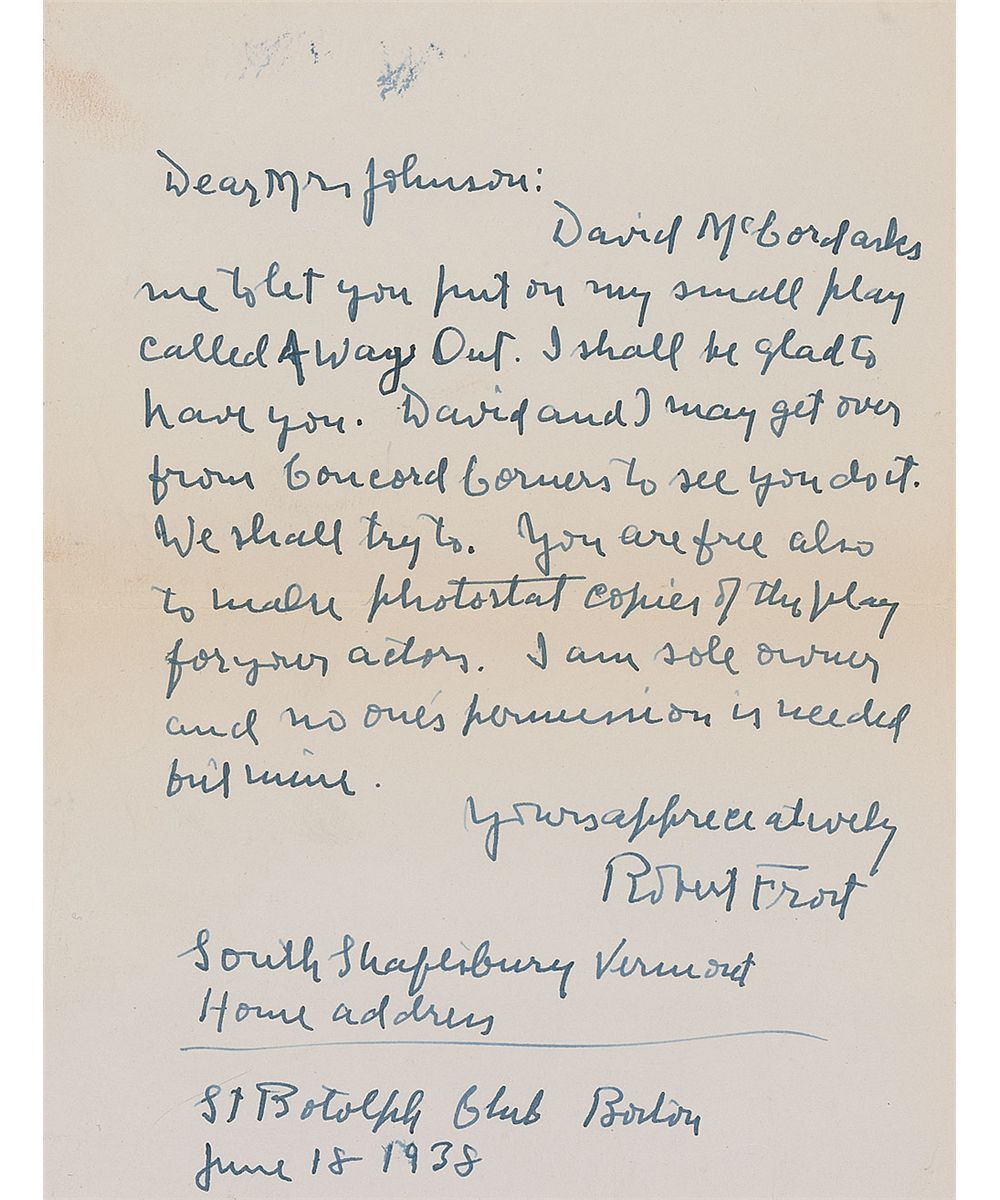 Dear Mrs Johnson:
David McCord asks
me to let you put on my small play
called A Way Out. I shall be glad to
have you. David and I may get over
from Concord Corners to see you do it.
We shall try to. You are free also
to make photostat copies of the play
for your actors. I am sole owner
and no one's permission is needed
but mine.
Yours appreciatively
Robert Frost
South Shaftsbury Vermont
Home address
St Botolph Club Boston
June 18 1938